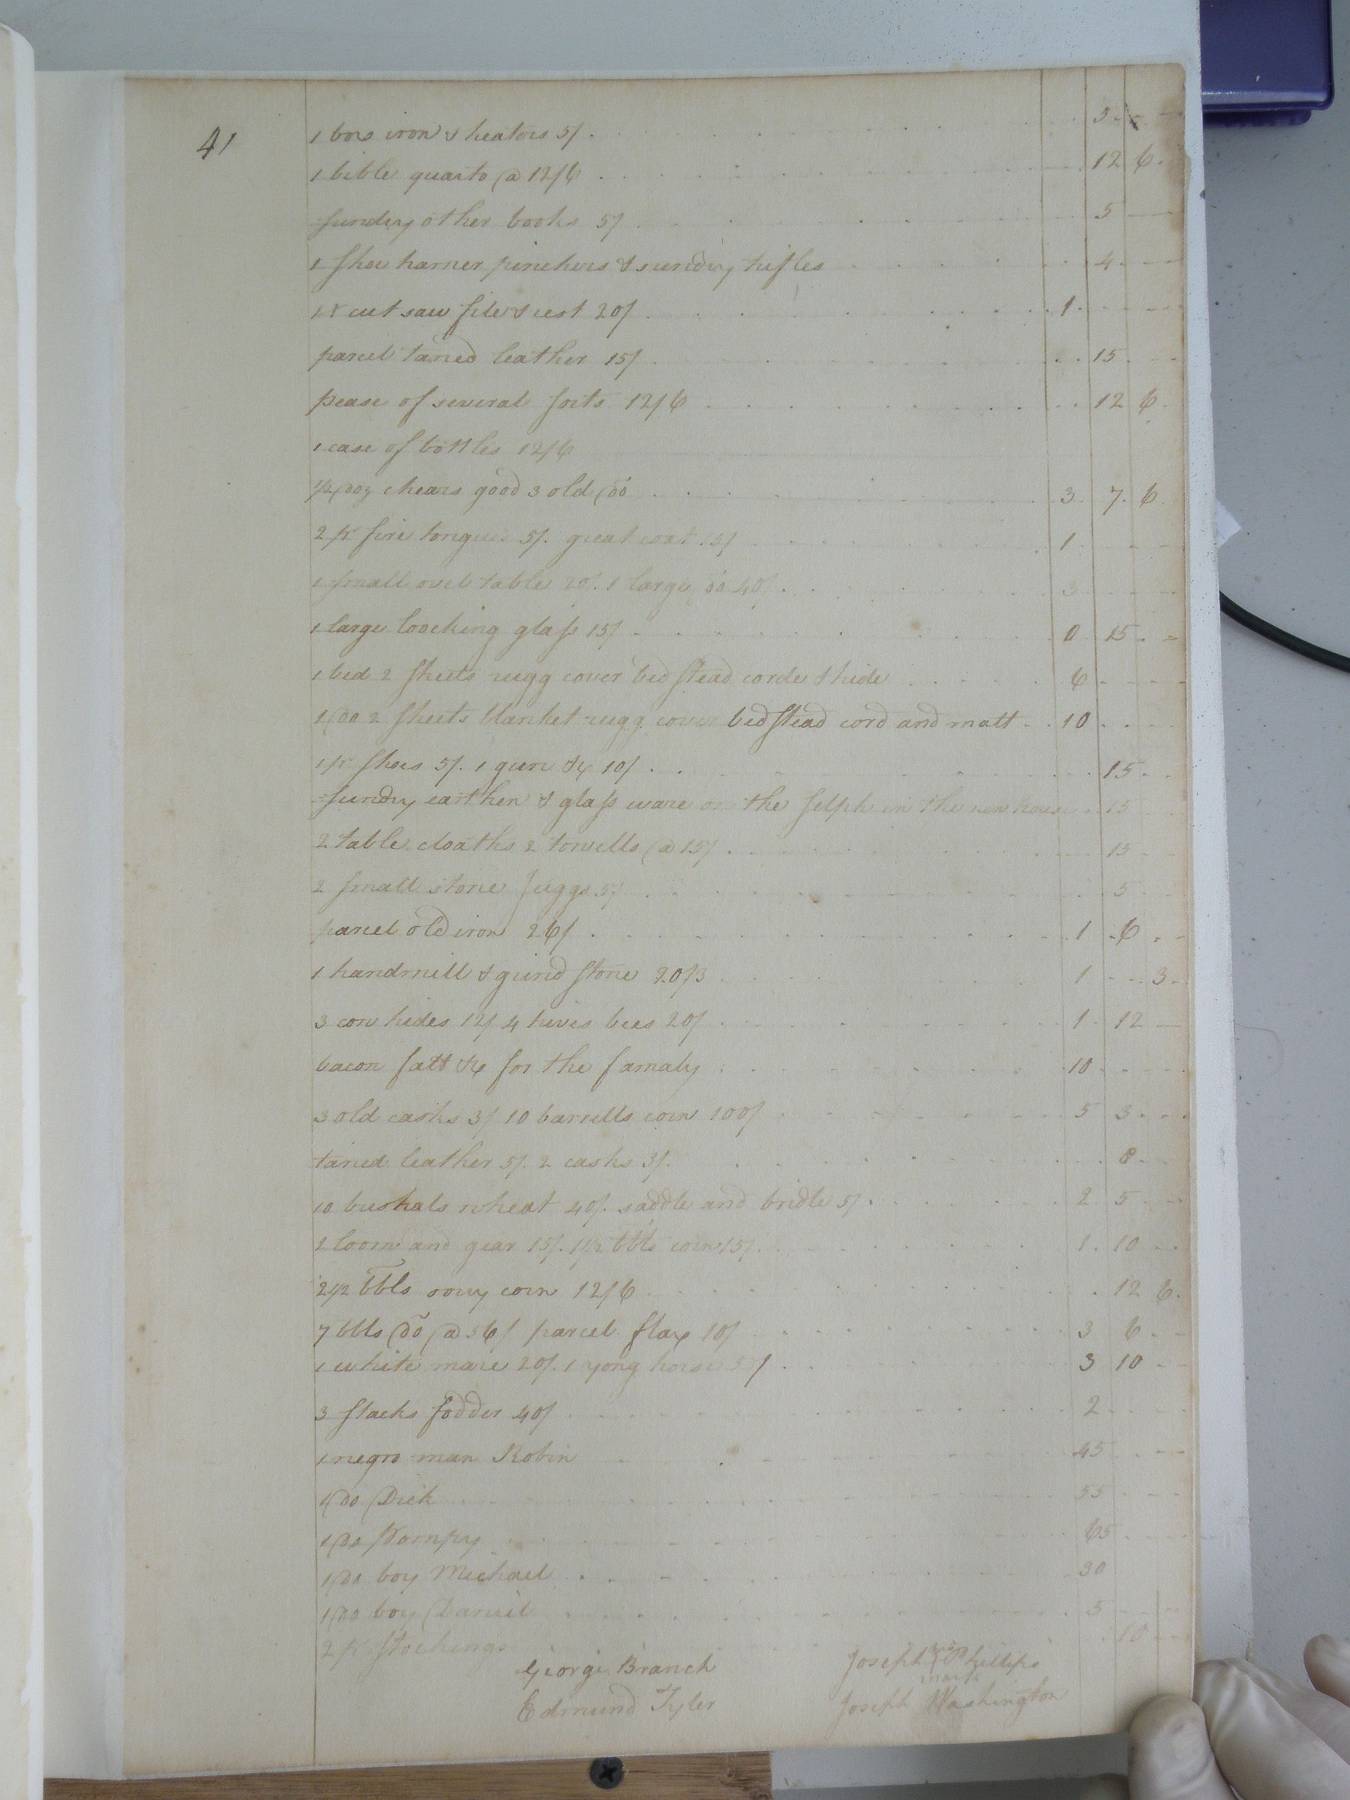 41
1 box iron & heaters 5/. 5
1 bible quarto @ 12/6 12 6
sundry other books 5/ 5
1 shoe hamer pinchers & sundry trifles 4
1 X cut saw file & rest 20/ 1
parcel taned leather 15/ 15
pease of several sorts 12/6 12 6
1 case of bottles 12/6
1/2 doz chears good 3 old do 3 7 6
2 pr fire tongues 5/. great coat 15/ 1
1 small ovel table 20/. 1 large do 40/. 3
1 large loocking glass 15/ 0 15
1 bed 2 sheets rugg cover bed stead corde & hide 6
1 do 2 sheets blanket rugg cover bedstead cord and matt 10
1 pr shoes 5/. 1 gun &c 10/ 15
sundry earthen & glass ware on the selph in the new house 15
2 table cloaths 2 towells @ 15/ 15
2 small stone juggs 5/ 5
parcel old iron 26/ 1 6
1 handmill & grind stone 20/3 1 3
3 cow hides 12/ 4 hives bees 20/ 1 12
bacon fatt &c for the famaly 10
3 old casks 3/ 10 barrells corn 100/ 5 3
taned leather 5/. 2 casks 3/. 8
10 bushals wheat 40/. saddle and bridle 5/. 2 5
2 loom and gear 15/. 1 1/2 bbls corn 15/. 1 10
2 1/2 bbls corn 12/6 12 6
7 bbls do @ 56/ parcel flax 10/ 3 6
1 white mare 20/. 1 yong horse 50/ 3 10
3 stacks fodder 40/ 2
1 negro man Robin 45
1 do Dick 55
1 do Pompy 65
1 do boy Michael 30
1 do boy Daniel 5
2 pr stockings 10
George Branch Joseph his Phillips
mark
Edmund Tyler Joseph Washington